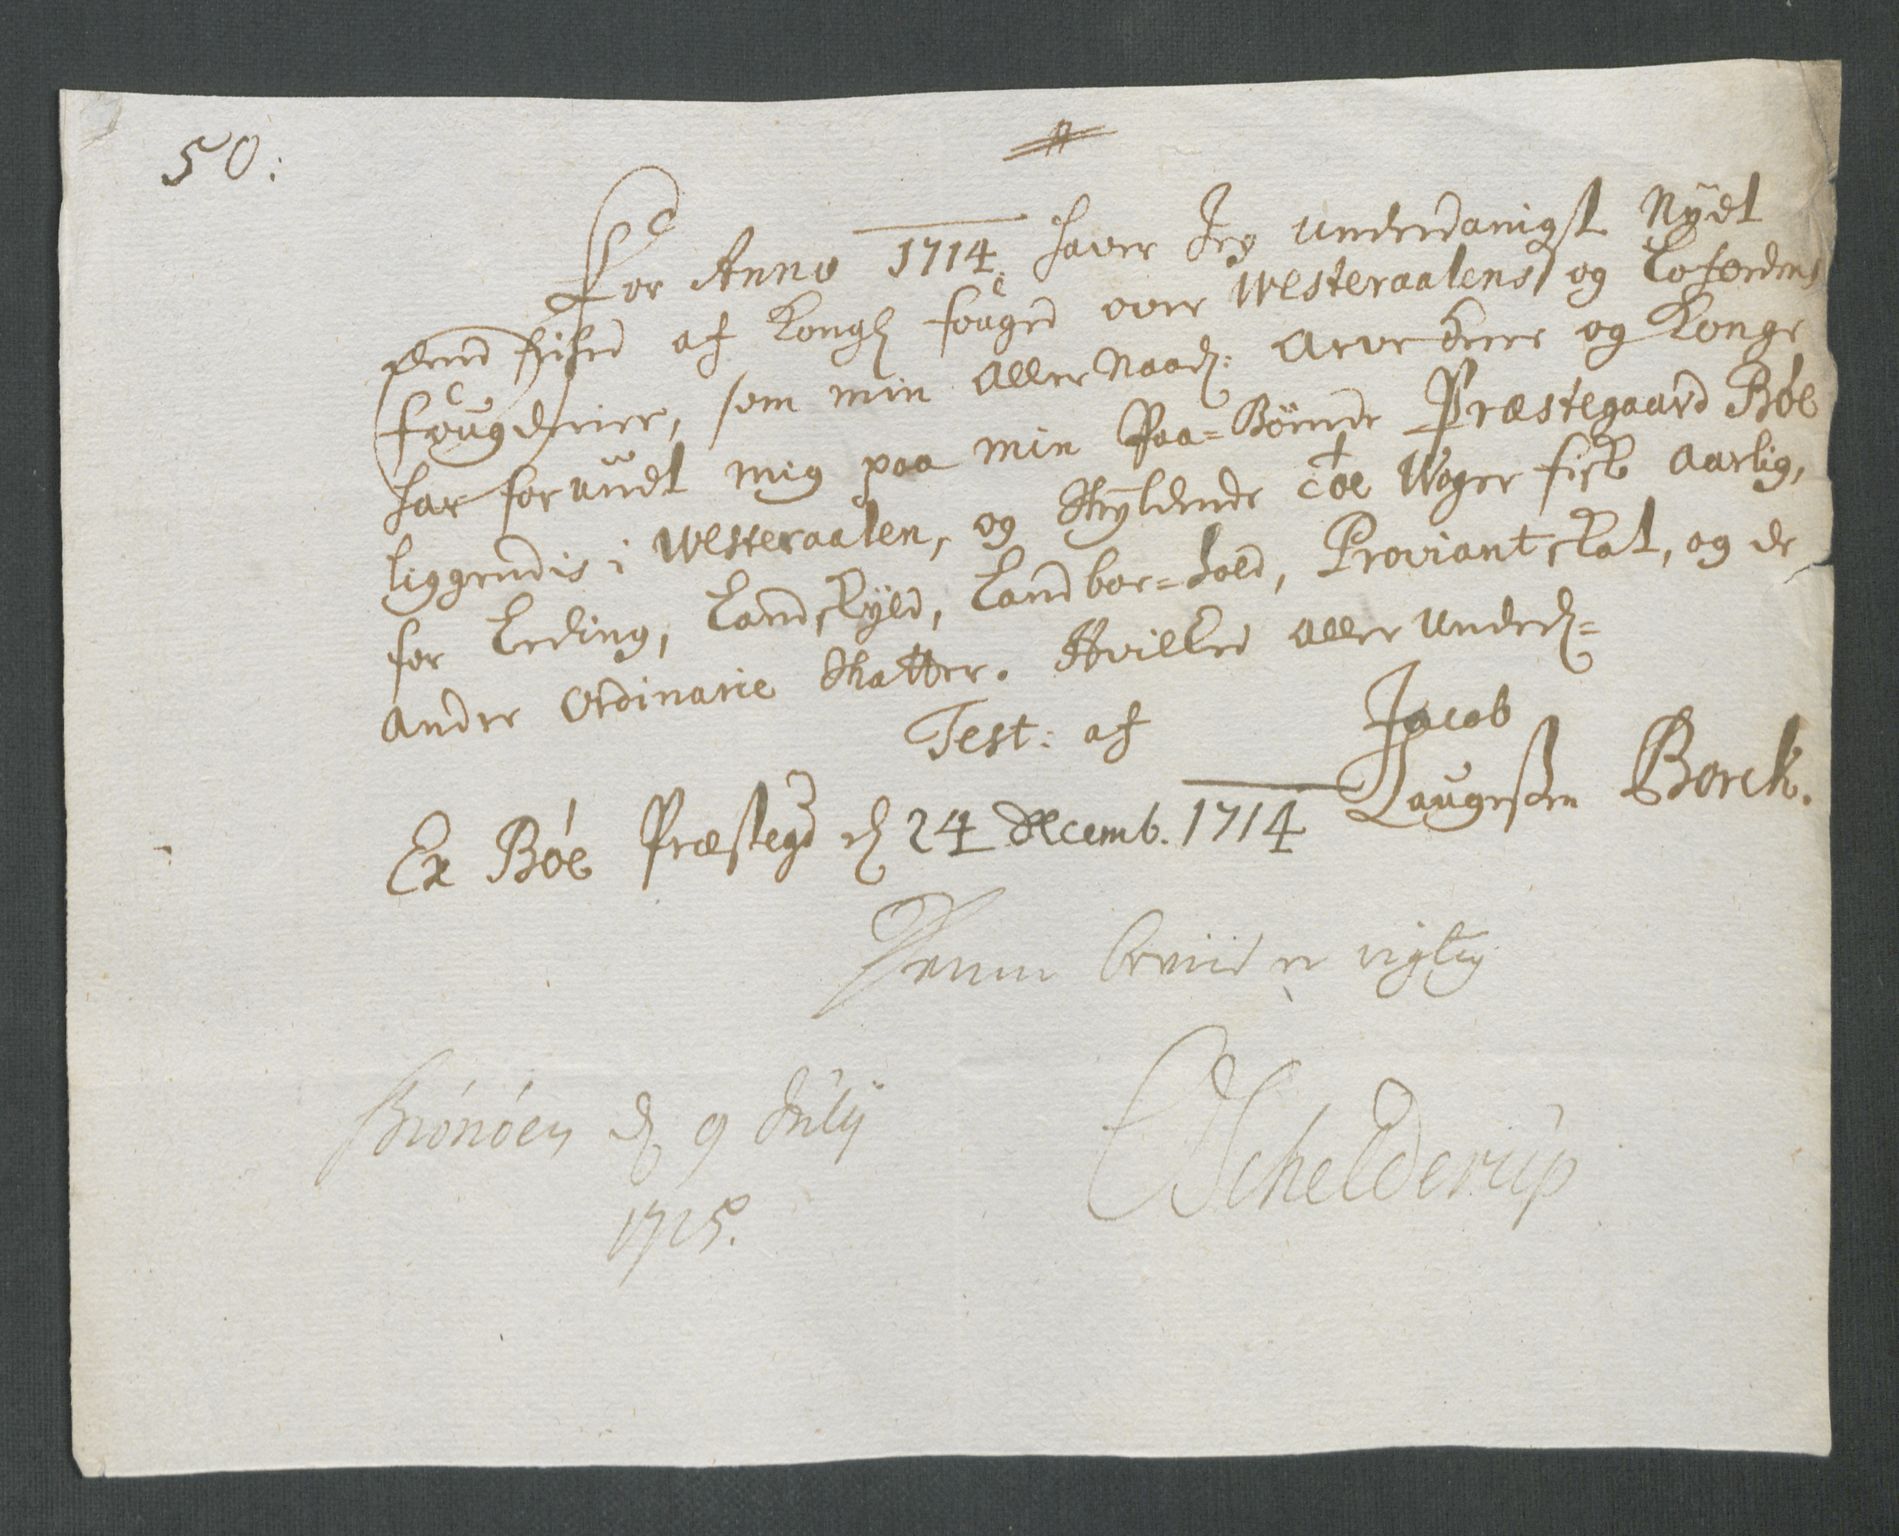 50:
For Anno 1714 haver Jeg underdanigst Nydt
dend frihed af Kongl fouged over Westeraalens og Lofoedens
fougderier, som min Aller Naad: Arve Herre og Konge
har forundt mig paa min Paa=Boende Præstegaard Böe
liggendis i Westeraalen, og Skyldende Toe Woger fisk Aarlig,
for Leding, Landskyld, Landbor=hold, Proviantskat, og de
Andre Ordinarie Skatter. Hvilked Aller Underd=
Test: af Jacob
Laugeßen Borck.
Ex Böe Præstegd d 24 Decemb. 1714
Denne beviis er rigtig
Brönöen d 9 July
1715.
Schelderup